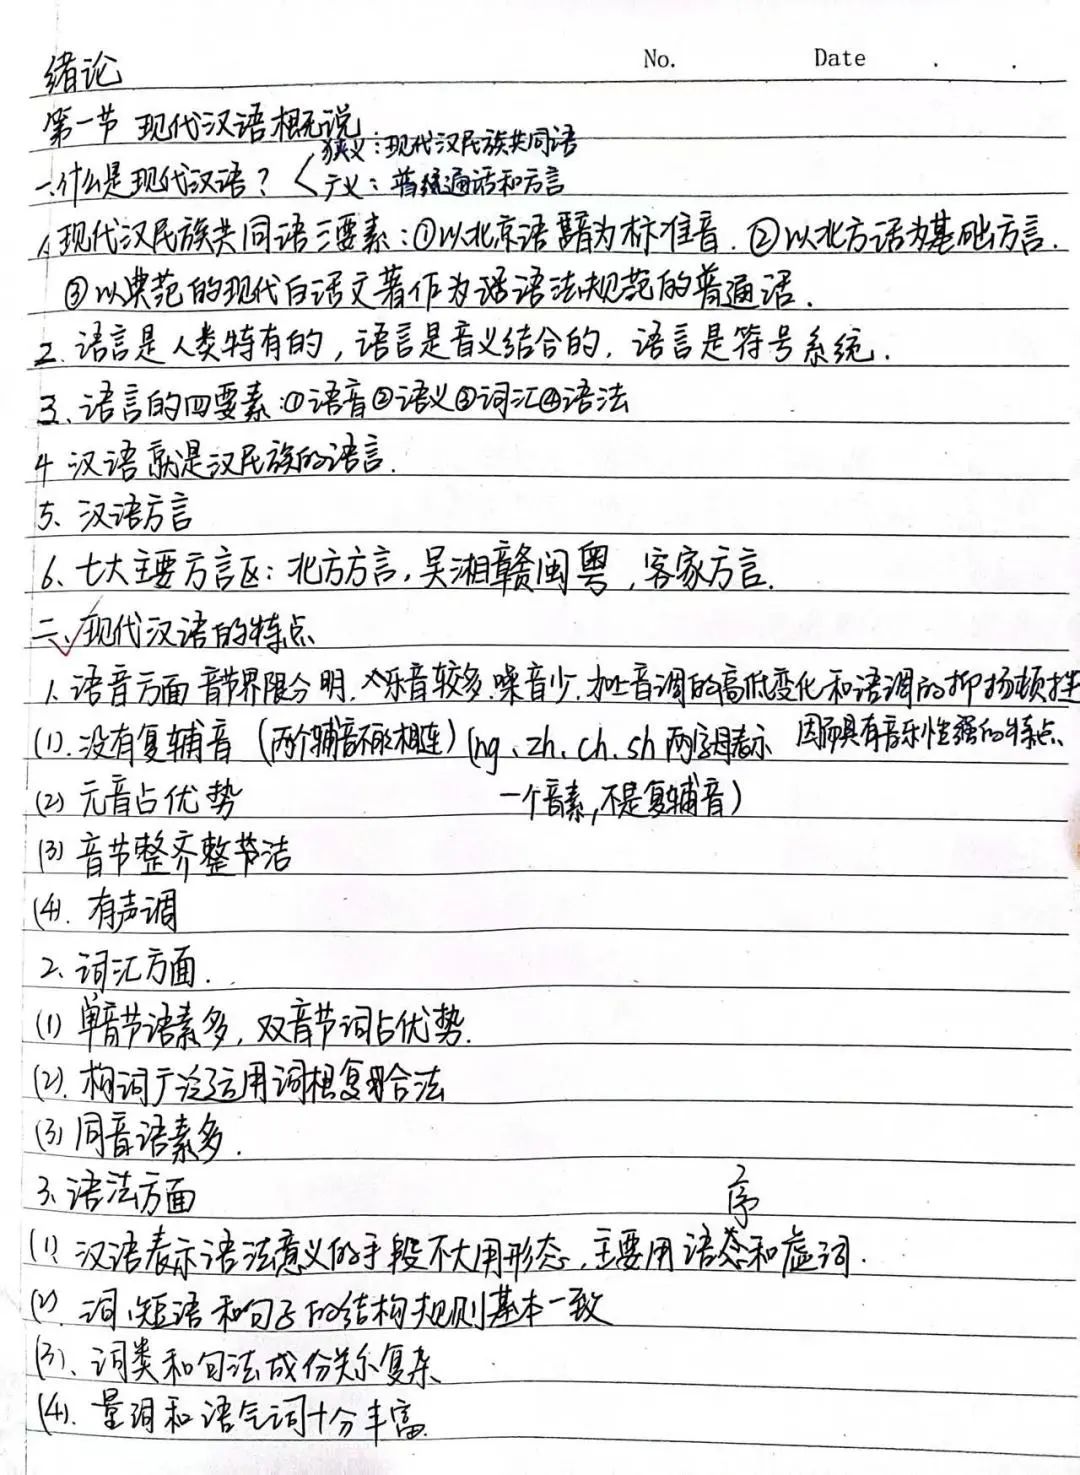 No. Date
绪论
第一节 现代汉语概说
狭义：现代汉民族共同语
一、什么是现代汉语？
广义：普通话和方言
1、现代汉民族共同语三要素：①以北京语音为标准音．②以北方话为基础方言．
③以典范的现代白话文著作为语法规范的普通话．
2．语言是人类特有的，语言是音义结合的，语言是符号系统．
3、语言的四要素：①语音②语义③词汇④语法
4 汉语就是汉民族的语言．
5、汉语方言
6、七大主要方言区：北方方言，吴湘赣闽粤，客家方言．
二、现代汉语的特点
1、语音方面 音节界限分明．乐音较多．噪音少．加上音调的高低变化和语调的抑扬顿挫
因而具有音乐性强的特点
(1)．没有复辅音（两个辅音不能相连）（ng、zh、ch、sh 两字母表示
一个音素，不是复辅音）
(2) 元音占优势
(3) 音节整齐简洁
(4)．有声调
2、词汇方面．
(1) 单音节语素多，双音节词占优势．
(2)．构词广泛运用词根复合法
(3) 同音语素多．
3、语法方面
序
(1) 汉语表示语法意义的手段不大用形态，主要用语和虚词．
(2)．词、短语和句子的结构规则基本一致
(3)、词类和句法成份关系复杂
(4)．量词和语气词十分丰富．